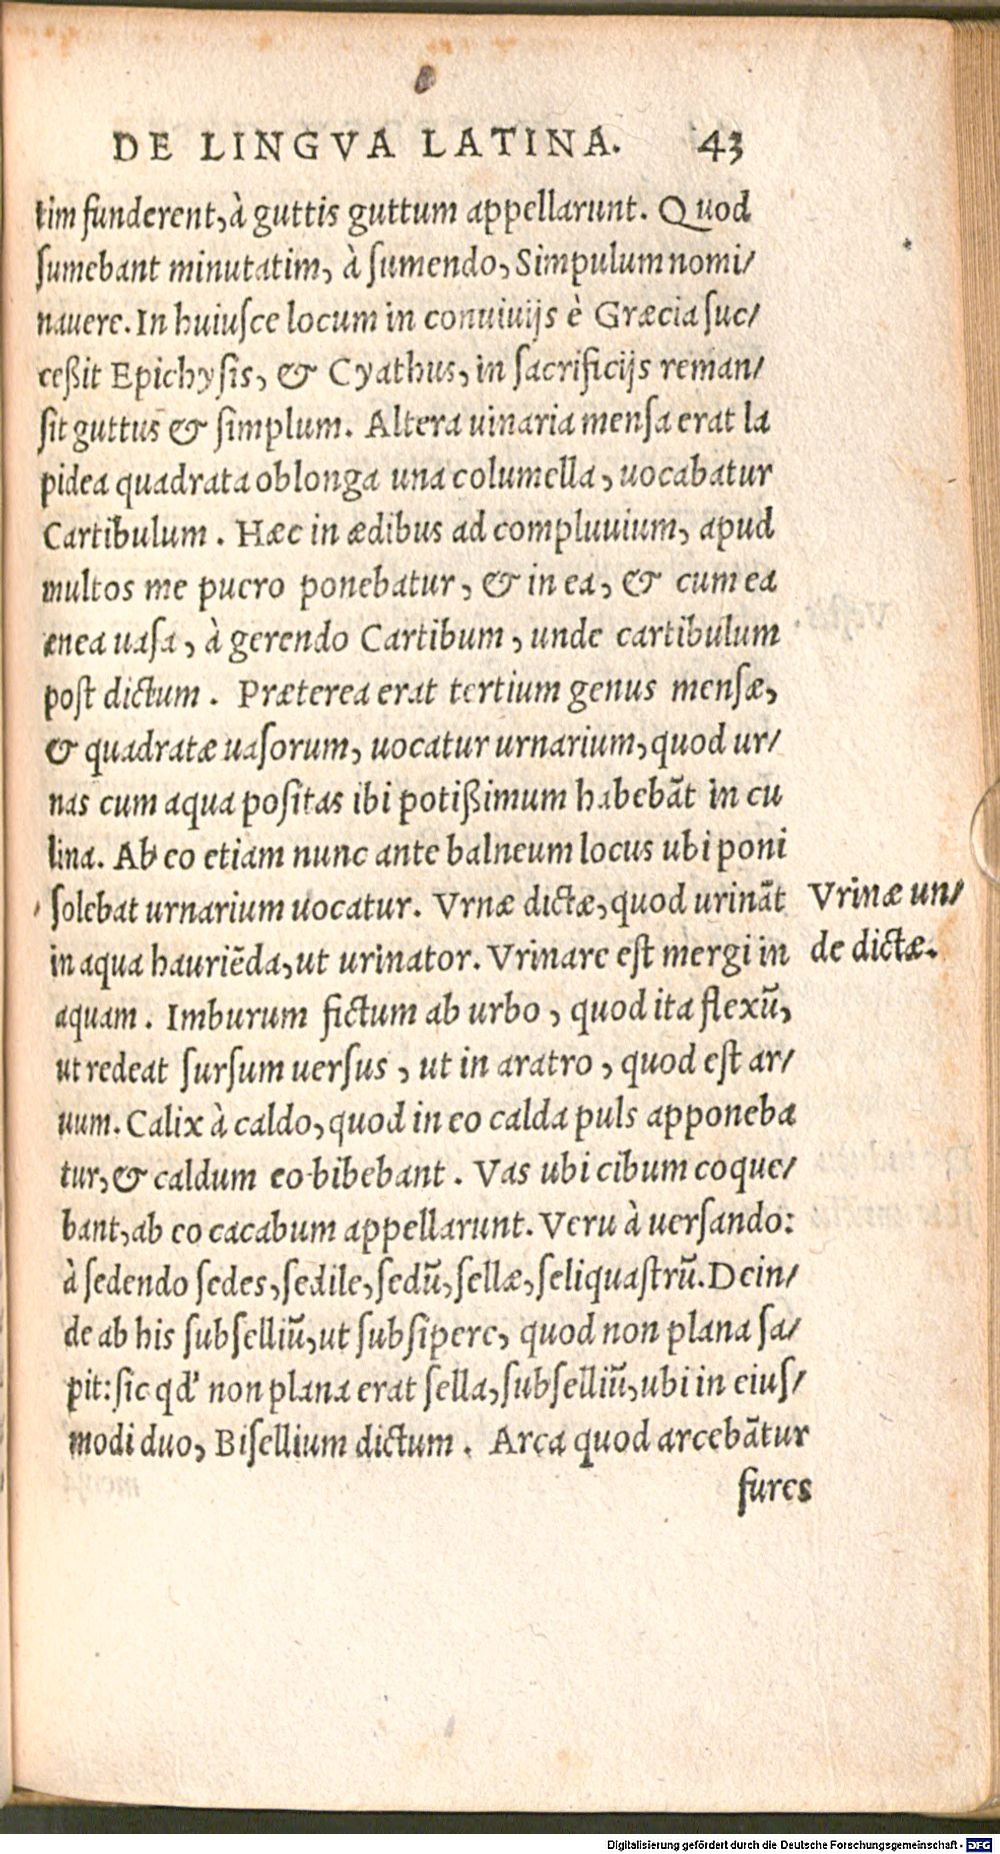 DE LINGVA LATINA. 43
tim funderent, à guttis guttum appellarunt. Quod
ſumebant minutatim, à ſumendo, Simpulum nomi/
nauere. In huiuſce locum in conuiuijs è Græcia ſuc/
ceßit Epichyſis, & Cyathus, in ſacrificijs reman/
ſit guttus & ſimplum. Altera uinaria menſa erat la
pidea quadrata oblonga una columella, uocabatur
Cartibulum. Hæc in ædibus ad compluuium, apud
multos me puero ponebatur, & in ea, & cum ea
ænea uaſa, à gerendo Cartibum, unde cartibulum
poſt dictum. Præterea erat tertium genus menſæ,
& quadratæ uaſorum, uocatur urnarium, quod ur/
nas cum aqua poſitas ibi potißimum habebãt in cu
lina. Ab eo etiam nunc ante balneum locus ubi poni
ſolebat urnarium uocatur. Vrnæ dictæ, quod urinãt
in aqua hauriẽda, ut urinator. Vrinare eſt mergi in
aquam. Imburum fictum ab urbo, quod ita flexũ,
ut redeat ſurſum uerſus, ut in aratro, quod eſt ar/
uum. Calix à caldo, quod in eo calda puls apponeba
tur, & caldum eo bibebant. Vas ubi cibum coque/
bant, ab eo cacabum appellarunt. Veru à uerſando:
à ſedendo ſedes, ſedile, ſedũ, ſellæ, ſeliquaſtrũ. Dein/
de ab his ſubſelliũ, ut ſubſipere, quod non plana ſa/
pit: ſic qd' non plana erat ſella, ſubſelliũ, ubi in eiuſ/
modi duo, Biſellium dictum. Arca quod arcebãtur
fures
Vrinæ un/
de dictæ.
Digitalisierung gefördert durch die Deutsche Forschungsgemeinschaft - DFG